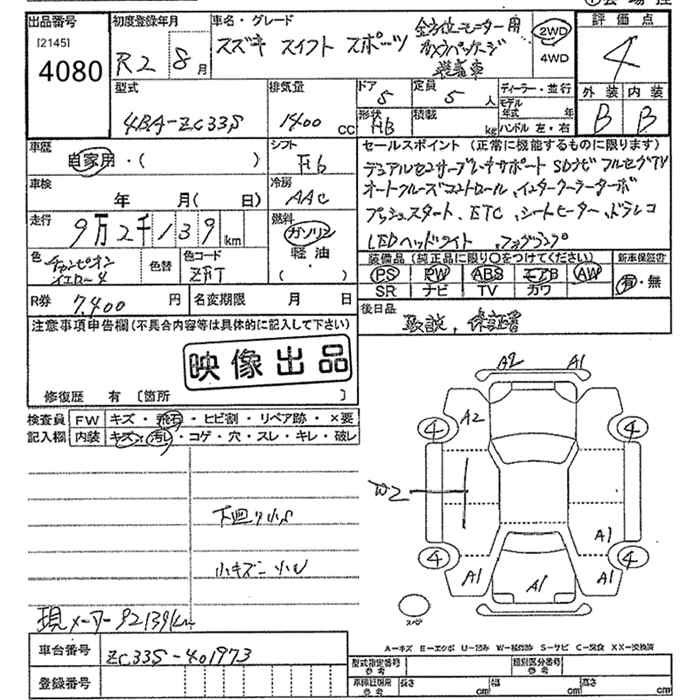 出品番号 初度登録年月 車名・グレード 評価点
[2145]
4080
R2 8月
スズキ スイフト スポーツ
全方位モニター用
カメラパッケージ
装着車
2WD
4WD
4
外装 内装
B B
型式 排気量 ドア 定員 ディーラー・並行
4BA-ZC33S 1400 cc 5 5人
形状 積載 モデル年式 年
HB kg ハンドル 左・右
車歴 シフト セールスポイント(正常に機能するものに限ります)
自家用・( ) F6
デュアルセンサーブレーキサポート SDナビ フルセグTV
車検 冷房
年 月(日) AAC
オートクルーズコントロール、インタークーラーターボ
走行 燃料
9万2千139km ガソリン
軽油
・( )
プッシュスタート、ETC、シートヒーター、ドラレコ
LEDヘッドライト、フォグランプ
色 色替 色コード
チャンピオン
イエロー4
ZFT
装備品(純正品に限り○をつけてください) 新車保証書
PS PW ABS エアB AW 有・無
SR ナビ TV カワ
R券 7,400円 名変期限 月 日
後日品
取説、保証書
注意事項申告欄(不具合内容等は具体的に記入して下さい)
映像出品
修復歴 有 [箇所 ]
検査員 FW キズ・飛石・ヒビ割・リペア跡・×要
記入欄 内装 キズ・汚れ・コゲ・穴・スレ・キレ・破レ
A2 A1
A2
4 4
W2
A1
4 4
A1 A1 A1
下廻り小S
小キズ 小凹
スペア
現メーター92139km
A-キズ E-エクボ U-凹み W-補修跡 S-サビ C-腐食 XX-交換済
車台番号 ZC33S-401973
型式指定番号 参考 類別区分番号 参考
登録番号
長さ cm 幅 cm 高さ cm